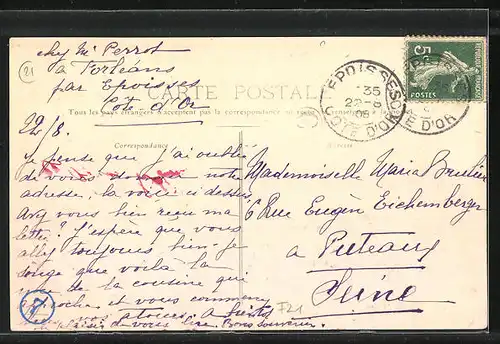 chez Mr Perrot
à Forléans
par Epoisses
Côte d'Or
21
CARTE POSTALE
Tous les pays étrangers n'acceptent pas la correspondance au recto
Correspondance
EPOISSES
CÔTE D'OR
35
22-8
08
5
POSTES
22/8.
Je pense que j'ai oublié
de vous donner notre
adresse, la voici ci dessus
Avez vous bien reçu ma
lettre? J'espère que vous
allez toujours bien. Je
songe que voilà la
de la cousine qui
approche et vous
vos atours. A bientôt
le plaisir de vous lire. Bons souvenirs.
Mademoiselle Maria
6 Rue Eugène Eichemberger
à Puteaux
Seine
F21
7